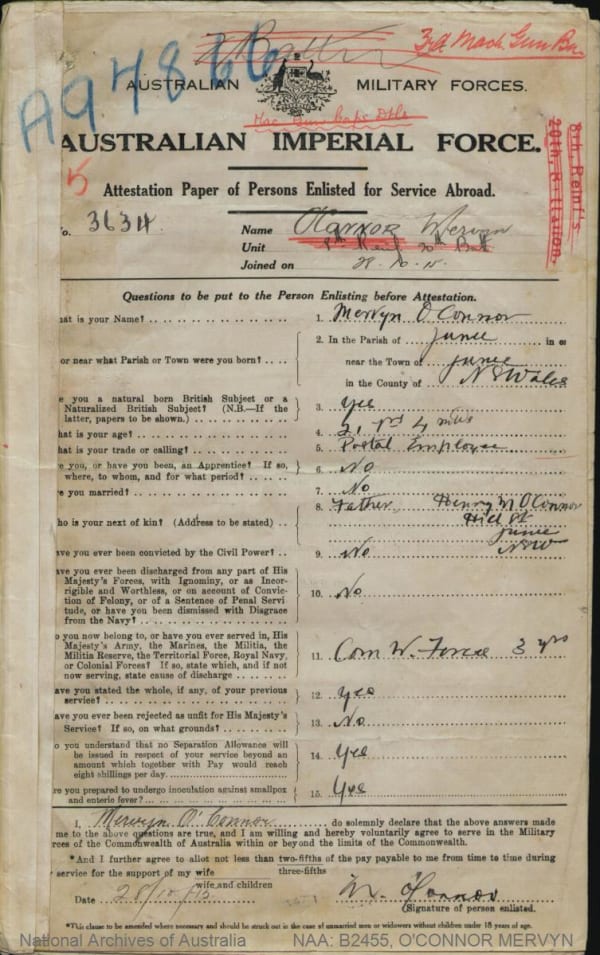 A94866
3rd Mach. Gun Bn.
AUSTRALIAN MILITARY FORCES.
AUSTRALIAN IMPERIAL FORCE.
8th Reinf's
20th Battalion.
5
Attestation Paper of Persons Enlisted for Service Abroad.
o. 3634. Name O'Connor Mervyn
Unit 8th Reinf 20th Batt
Joined on 28.10.15.
Questions to be put to the Person Enlisting before Attestation.
hat is your Name? 1. Mervyn O'Connor
2. In the Parish of Junee in or
or near what Parish or Town were you born? near the Town of Junee
in the County of N S Wales
e you a natural born British Subject or a
Naturalized British Subject? (N.B.—If the
latter, papers to be shown.) 3. Yes
hat is your age? 4. 4 mths
hat is your trade or calling? 5. Postal Employee
e you, or have you been, an Apprentice? If so,
where, to whom, and for what period? 6. No
e you married? 7. No
ho is your next of kin? (Address to be stated) 8. Father Henry M O'Connor
Hill St
Junee
NSW
ave you ever been convicted by the Civil Power? 9. No
ave you ever been discharged from any part of His
Majesty's Forces, with Ignominy, or as Incor-
rigible and Worthless, or on account of Convic-
tion of Felony, or of a Sentence of Penal Servi
tude, or have you been dismissed with Disgrace
from the Navy? 10. No
o you now belong to, or have you ever served in, His
Majesty's Army, the Marines, the Militia, the
Militia Reserve, the Territorial Force, Royal Navy,
or Colonial Forces? If so, state which, and if not
now serving, state cause of discharge 11. Com W. Force 3 yrs
ave you stated the whole, if any, of your previous
service? 12. Yes
ave you ever been rejected as unfit for His Majesty's
Service? If so, on what grounds? 13. No
o you understand that no Separation Allowance will
be issued in respect of your service beyond an
amount which together with Pay would reach
eight shillings per day. 14. Yes
re you prepared to undergo inoculation against smallpox
and enteric fever? 15. Yes
I, Mervyn O'Connor do solemnly declare that the above answers made
me to the above questions are true, and I am willing and hereby voluntarily agree to serve in the Military
rces of the Commonwealth of Australia within or beyond the limits of the Commonwealth.
*And I further agree to allot not less than two-fifths of the pay payable to me from time to time during
three-fifths
service for the support of my wife
wife and children
Date 28/10/15 M. O'Connor
(Signature of person enlisted.
*This clause to be amended where necessary and should be struck out in the case of unmarried men or widowers without children under 18 years of age.
National Archives of Australia NAA: B2455, O'CONNOR MERVYN